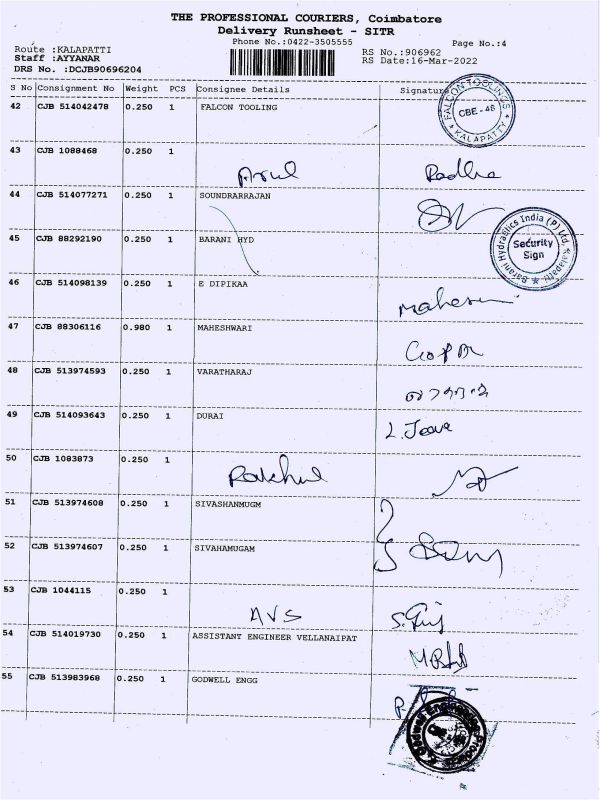 THE PROFESSIONAL COURIERS, Coimbatore
Delivery Runsheet - SITR
Phone No.:0422-3505555
Page No.:4
Route :KALAPATTI
Staff :AYYANAR
DRS No. :DCJB90696204
RS No.:906962
RS Date:16-Mar-2022
S No Consignment No Weight PCS Consignee Details Signature
42 CJB 514042478 0.250 1 FALCON TOOLING
FALCON TOOLINGS
CBE - 48
KALAPATTY
43 CJB 1088468 0.250 1
Arul Radha
44 CJB 514077271 0.250 1 SOUNDRARRAJAN
45 CJB 88292190 0.250 1 BARANI HYD
Barani Hydraulics India (P) Ltd, Kalapatti
Security
Sign
46 CJB 514098139 0.250 1 E DIPIKAA
47 CJB 88306116 0.980 1 MAHESHWARI
48 CJB 513974593 0.250 1 VARATHARAJ
49 CJB 514093643 0.250 1 DURAI
50 CJB 1083873 0.250 1
51 CJB 513974608 0.250 1 SIVASHANMUGM
52 CJB 513974607 0.250 1 SIVAHAMUGAM
53 CJB 1044115 0.250 1
AVS
54 CJB 514019730 0.250 1 ASSISTANT ENGINEER VELLANAIPAT
55 CJB 513983968 0.250 1 GODWELL ENGG